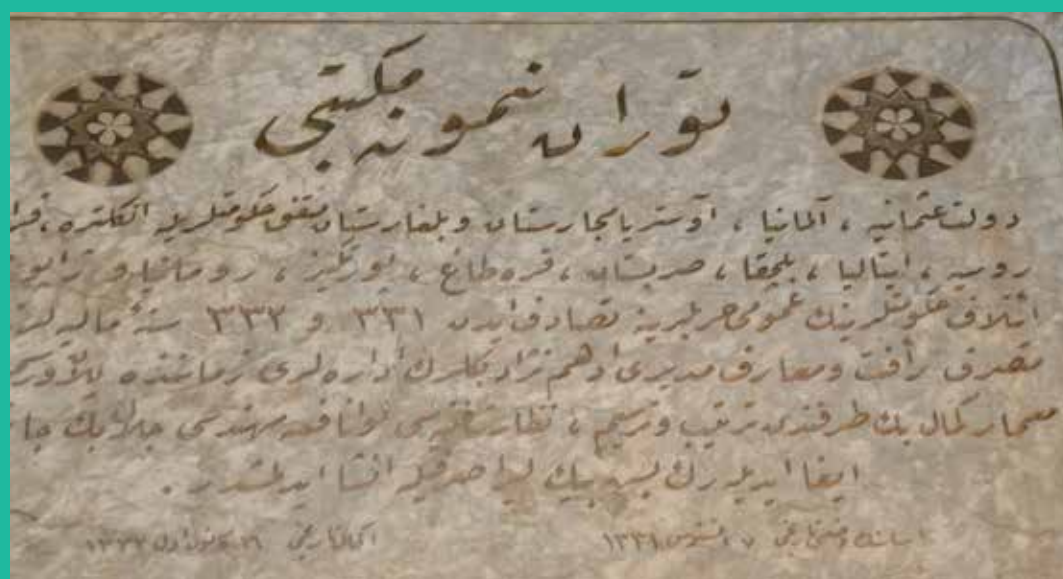 توران نمونه مكتبى
دولت عثمانيه ، آلمانيا ، اوستريا مجارستان و بلغارستان متفق حكومتلريله انكلتره ،
روسيه ، ايتاليا ، بلچيقا ، صربستان ، قره طاغ ، پورتكيز ، رومانيا و ژاپون
ائتلاف حكومتلرينك عمومى حربلرينه تصادف ايدن ٣٣١ و ٣٣٢ سنۀ ماليه
متصرف رأفت ومعارف مديرى ادهم نژاد بكلرك اداره لرى زماننده
معمار كمال بك طرفندن ترتيب وترسيم ، نظارت فنيه سى نافعه مهندسى جلال بك
ايفا ايديلرك بيك ليرا صرفيله انشا ايدلمشدر .
اساسك وضعى تاريخى ٧ اغستوس ١٣٣١ اكمال تاريخى كانون اول ١٣٣٢